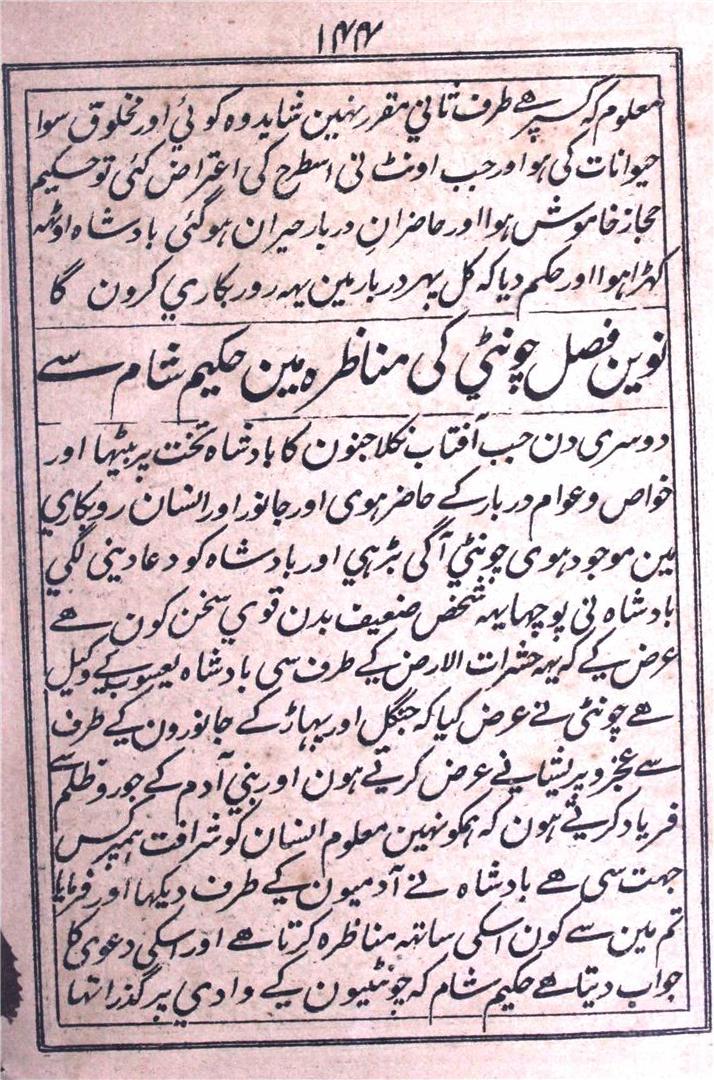 ۱۴۴
معلوم کہ کسپر ھے طرف ثانی مقرر نہین شاید وہ کوئی اور مخلوق سوا
حیوانات کی ہو اور جب اونٹ نی اسطرح کی اعتراض کئی تو حکیم
حجاز خاموش ہوا اور حاضرانِ دربار حیران ہوگئی بادشاہ اوٹھہ
کہڑا ہوا اور حکم دیا کہ کل پہر دربار مین یہہ روبکاری کرون گا
نوین فصل چونٹی کی مناظرہ مین حکیم شام سے
دوسری دن جب آفتاب نکلا جنون کا بادشاہ تخت پر بیٹہا اور
خواص و عوام دربار کے حاضر ہوی اور جانور اور انسان روبکاری
مین موجود ہوی چونٹی آگی بڑہی اور بادشاہ کو دعا دینی لگی
بادشاہ نی پوچہا یہہ شخص ضعیف بدن قوی سخن کون ھے
عرض کیے کہ یہہ حشرات الارض کے طرف سی بادشاہ یعسوب کے وکیل
ھے چونٹی نے عرض کیا کہ جنگل اور پہاڑ کے جانورون کے طرف
سے عجز و پریشانے عرض کرتے ہون اور بنی آدم کے جور و ظلم سے
فریاد کرتے ہون کہ ہمکو نہین معلوم انسان کو شرافت ہمپر کس
جہت سی ھے بادشاہ نے آدمیون کے طرف دیکہا اور فرمایا
تم مین سے کون اسکی ساتہہ مناظرہ کرتا ھے اور اسکی دعوی کا
جواب دیتا ھے حکیم شام کہ چونٹیون کے وادی پر گذرا تہا